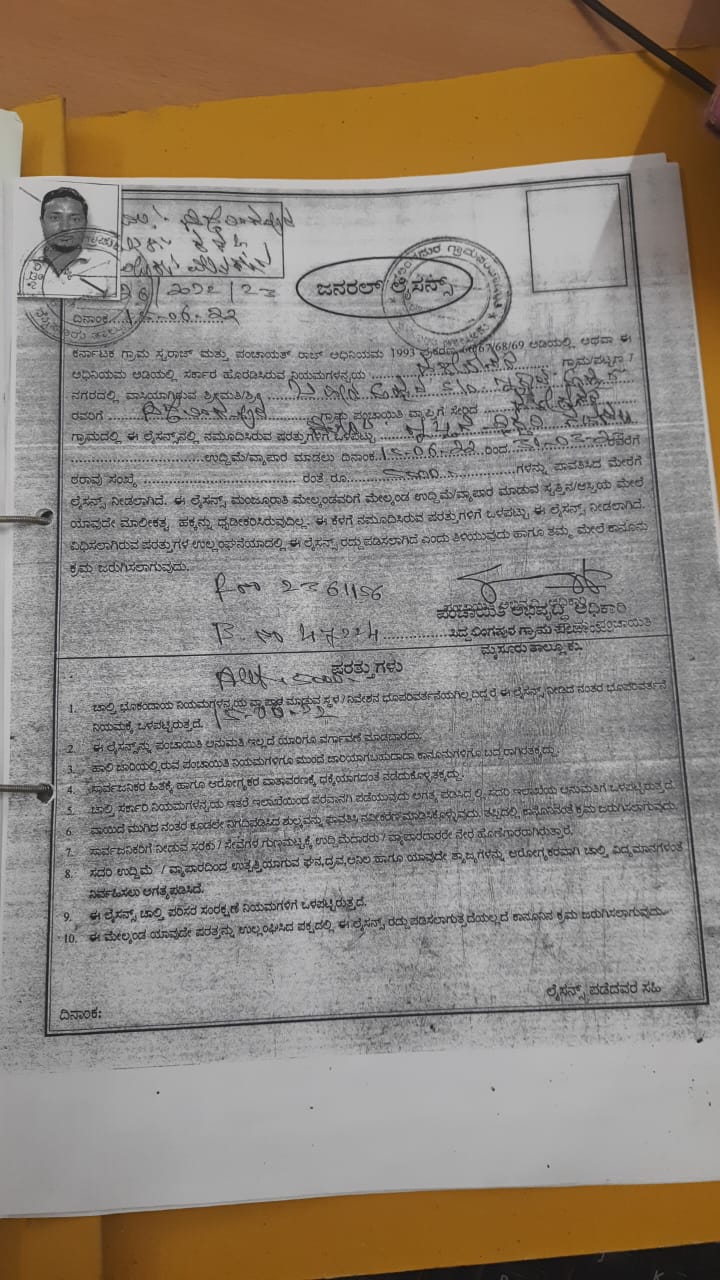 ಜನರಲ್ ಲೈಸೆನ್ಸ್
2022/23
ದಿನಾಂಕ 15-06-22
ಕರ್ನಾಟಕ ಗ್ರಾಮ ಸ್ವರಾಜ್ ಮತ್ತು ಪಂಚಾಯತ್ ರಾಜ್ ಅಧಿನಿಯಮ 1993 ಪ್ರಕರಣ 66/67/68/69 ಅಡಿಯಲ್ಲಿ ಅಥವಾ ಈ
ಅಧಿನಿಯಮ ಅಡಿಯಲ್ಲಿ ಸರ್ಕಾರ ಹೊರಡಿಸಿರುವ ನಿಯಮಗಳನ್ವಯ ಗ್ರಾಮ/ಪಟ್ಟಣ /
ನಗರದಲ್ಲಿ ವಾಸಿಯಾಗಿರುವ ಶ್ರೀಮತಿ/ಶ್ರೀ
ರವರಿಗೆ ಗ್ರಾಮ ಪಂಚಾಯಿತಿ ವ್ಯಾಪ್ತಿಗೆ ಸೇರಿದ
ಗ್ರಾಮದಲ್ಲಿ ಈ ಲೈಸೆನ್ಸ್‌ನಲ್ಲಿ ನಮೂದಿಸಿರುವ ಷರತ್ತುಗಳಿಗೆ ಒಳಪಟ್ಟು
ಉದ್ದಿಮೆ/ವ್ಯಾಪಾರ ಮಾಡಲು ದಿನಾಂಕ 15-06-22 ರಿಂದ 31-03-23 ರವರೆಗೆ
ಠರಾವು ಸಂಖ್ಯೆ ರಂತೆ ರೂ 500 ಗಳನ್ನು ಪಾವತಿಸಿದ ಮೇರೆಗೆ
ಲೈಸೆನ್ಸ್ ನೀಡಲಾಗಿದೆ. ಈ ಲೈಸೆನ್ಸ್ ಮಂಜೂರಾತಿ ಮೇಲ್ಕಂಡವರಿಗೆ ಮೇಲ್ಕಂಡ ಉದ್ದಿಮೆ/ವ್ಯಾಪಾರ ಮಾಡುವ ಸ್ವತ್ತಿನ/ಆಸ್ತಿಯ ಮೇಲೆ
ಯಾವುದೇ ಮಾಲೀಕತ್ವ ಹಕ್ಕನ್ನು ಧೃಡೀಕರಿಸಿರುವುದಿಲ್ಲ. ಈ ಕೆಳಗೆ ನಮೂದಿಸಿರುವ ಷರತ್ತುಗಳಿಗೆ ಒಳಪಟ್ಟು ಈ ಲೈಸೆನ್ಸ್ ನೀಡಲಾಗಿದೆ.
ವಿಧಿಸಲಾಗಿರುವ ಷರತ್ತುಗಳ ಉಲ್ಲಂಘನೆಯಾದಲ್ಲಿ ಈ ಲೈಸೆನ್ಸ್ ರದ್ದುಪಡಿಸಲಾಗಿದೆ ಎಂದು ತಿಳಿಯುವುದು ಹಾಗೂ ತಮ್ಮ ಮೇಲೆ ಕಾನೂನು
ಕ್ರಮ ಜರುಗಿಸಲಾಗುವುದು.
R no 2361156
B no 47224
ಪಂಚಾಯಿತಿ ಅಭಿವೃದ್ಧಿ ಅಧಿಕಾರಿ
ಸಿದ್ದಲಿಂಗಪುರ ಗ್ರಾಮ ಪಂಚಾಯಿತಿ
ಮೈಸೂರು ತಾಲ್ಲೂಕು.
ಷರತ್ತುಗಳು
1. ಚಾಲ್ತಿ ಭೂಕಂದಾಯ ನಿಯಮಗಳನ್ವಯ ವ್ಯಾಪಾರ ಮಾಡುವ ಸ್ಥಳ / ನಿವೇಶನ ಭೂಪರಿವರ್ತನೆಯಾಗಿಲ್ಲದಿದ್ದರೆ ಈ ಲೈಸೆನ್ಸ್ ನೀಡಿದ ನಂತರ ಭೂಪರಿವರ್ತನೆ
ನಿಯಮಕ್ಕೆ ಒಳಪಟ್ಟಿರುತ್ತದೆ.
2. ಈ ಲೈಸೆನ್ಸ್‌ನ್ನು ಪಂಚಾಯಿತಿ ಅನುಮತಿ ಇಲ್ಲದೆ ಯಾರಿಗೂ ವರ್ಗಾವಣೆ ಮಾಡಬಾರದು.
3. ಹಾಲಿ ಜಾರಿಯಲ್ಲಿರುವ ಪಂಚಾಯಿತಿ ನಿಯಮಗಳಿಗೂ ಮುಂದೆ ಜಾರಿಯಾಗಬಹುದಾದ ಕಾನೂನುಗಳಿಗೂ ಬದ್ಧರಾಗಿರತಕ್ಕದ್ದು.
4. ಸಾರ್ವಜನಿಕರ ಹಿತಕ್ಕೆ ಹಾಗೂ ಆರೋಗ್ಯಕರ ವಾತಾವರಣಕ್ಕೆ ಧಕ್ಕೆಯಾಗದಂತೆ ನಡೆದುಕೊಳ್ಳತಕ್ಕದ್ದು.
5. ಚಾಲ್ತಿ ಸರ್ಕಾರಿ ನಿಯಮಗಳನ್ವಯ ಇತರೆ ಇಲಾಖೆಯಿಂದ ಪರವಾನಗಿ ಪಡೆಯುವುದು ಅಗತ್ಯ ಪಡಿಸಿದಲ್ಲಿ ಸದರಿ ಇಲಾಖೆಯ ಅನುಮತಿಗೆ ಒಳಪಟ್ಟಿರುತ್ತದೆ.
6. ವಾಯಿದೆ ಮುಗಿದ ನಂತರ ಕೂಡಲೇ ನಿಗದಿಪಡಿಸಿದ ಶುಲ್ಕವನ್ನು ಪಾವತಿಸಿ ನವೀಕರಣ ಮಾಡಿಸಿಕೊಳ್ಳುವುದು. ತಪ್ಪಿದಲ್ಲಿ ಕಾನೂನಿನಂತೆ ಕ್ರಮ ಜರುಗಿಸಲಾಗುವುದು.
7. ಸಾರ್ವಜನಿಕರಿಗೆ ನೀಡುವ ಸರಕು / ಸೇವೆಗಳ ಗುಣಮಟ್ಟಕ್ಕೆ ಉದ್ದಿಮೆದಾರರು / ವ್ಯಾಪಾರದಾರರೇ ನೇರ ಹೊಣೆಗಾರರಾಗಿರುತ್ತಾರೆ.
8. ಸದರಿ ಉದ್ದಿಮೆ / ವ್ಯಾಪಾರದಿಂದ ಉತ್ಪತ್ತಿಯಾಗುವ ಘನ,ದ್ರವ,ಅನಿಲ ಹಾಗೂ ಯಾವುದೇ ತ್ಯಾಜ್ಯಗಳನ್ನು ಆರೋಗ್ಯಕರವಾಗಿ ಚಾಲ್ತಿ ವಿದ್ಯಮಾನಗಳಂತೆ
ನಿರ್ವಹಿಸಲು ಅಗತ್ಯಪಡಿಸಿದೆ.
9. ಈ ಲೈಸೆನ್ಸ್ ಚಾಲ್ತಿ ಪರಿಸರ ಸಂರಕ್ಷಣೆ ನಿಯಮಗಳಿಗೆ ಒಳಪಟ್ಟಿರುತ್ತದೆ.
10. ಈ ಮೇಲ್ಕಂಡ ಯಾವುದೇ ಷರತ್ತನ್ನು ಉಲ್ಲಂಘಿಸಿದ ಪಕ್ಷದಲ್ಲಿ ಈ ಲೈಸೆನ್ಸ್ ರದ್ದು ಪಡಿಸಲಾಗುತ್ತದೆಯಲ್ಲದೆ ಕಾನೂನಿನ ಕ್ರಮ ಜರುಗಿಸಲಾಗುವುದು.
ಲೈಸೆನ್ಸ್ ಪಡೆದವರ ಸಹಿ
ದಿನಾಂಕ: